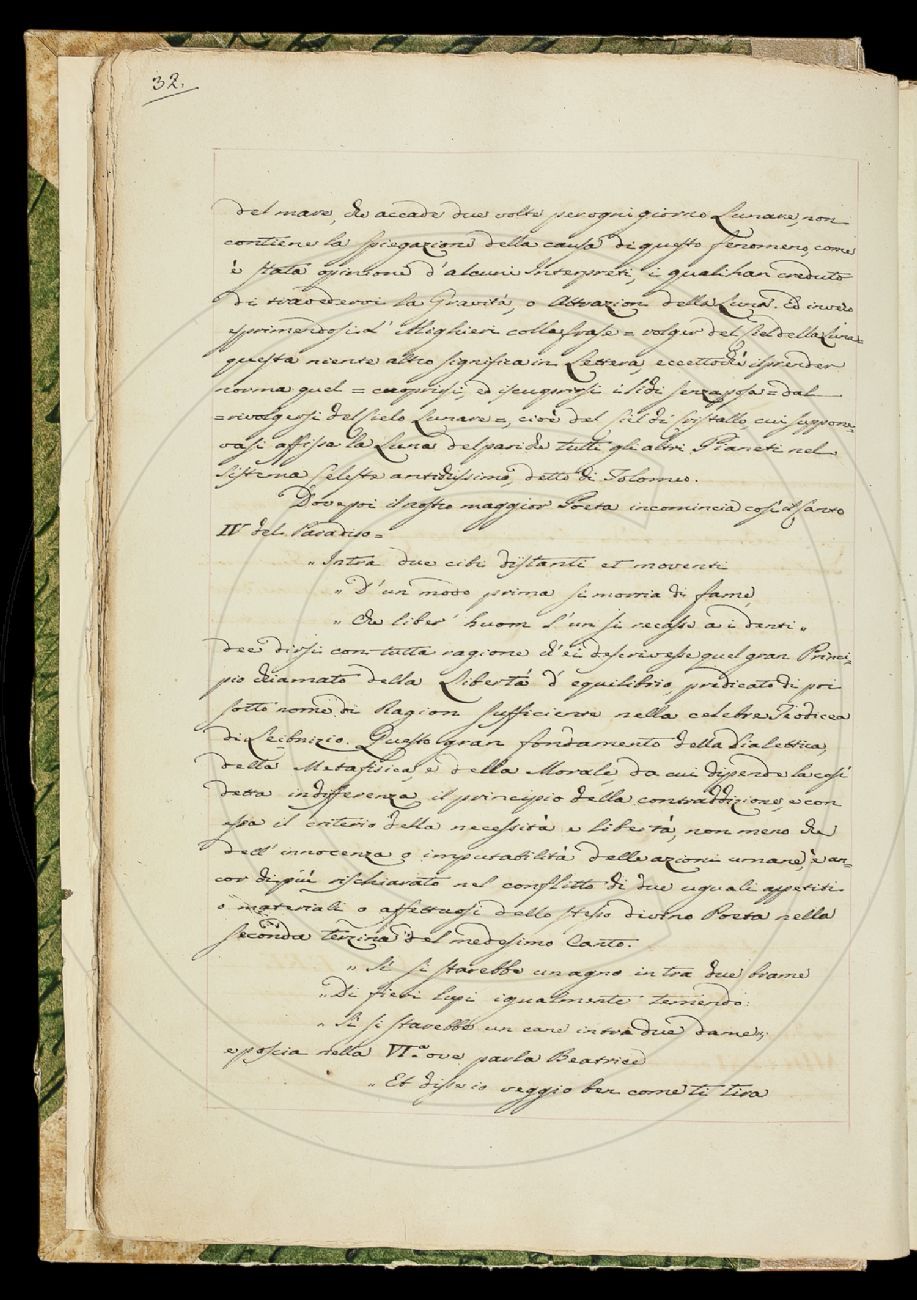 32.
del mare, che accade due volte per ogni giorno Lunare, non
contiene la spiegazione della causa di questo fenomeno, come
è stata opinione d'alcuni Interpreti, i quali han creduto
di travedervi la Gravità, o Attrazion della Luna. Ed invero
esprimendosi l'Alighieri colla frase = volger del Ciel della Luna =
questa niente altro significa in Lettera, eccettoché il prender
norma quel = cuoprirsi, ed iscuoprirsi i lidi senza posa = dal
= rivolgersi del Cielo Lunare =, cioè del Ciel di Cristallo, cui suppone-
vasi affissa la Luna del pari che tutti gli altri Pianeti nel
Sistema Celeste antichissimo, detto di Tolomeo.
Dove poi il nostro maggior Poeta incomincia così il Canto
IV del Paradiso =
„ Intra due cibi distanti et moventi
„ D'un modo prima si morria di fame,
„ Che liber' huom l'un si recasse a i denti „
dee dirsi con tutta ragione ch'ei descrivesse quel gran Princi-
pio chiamato della Libertà d'equilibrio, predicato di poi
sotto nome di Ragion sufficiente nella celebre Teodicea
di Leibnizio. Questo gran fondamento della Dialettica,
della Metafisica, e della Morale, da cui dipende la così
detta indifferenza, il principio della contraddizione, e con
essa il criterio della necessità e libertà, non meno che
dell'innocenza o imputabilità delle azioni umane, è an-
cor di più rischiarato nel conflitto di due uguali appetiti
o materiali o affettuosi dello stesso divino Poeta nella
seconda terzina del medesimo Canto.
„ Sì si starebbe un agno intra due brame
„ Di fieri lupi igualmente temendo:
„ Sì si starebbe un cane intra due dame „;
e poscia nella VI.ª ove parla Beatrice
„ Et disse io veggio ben come ti tira